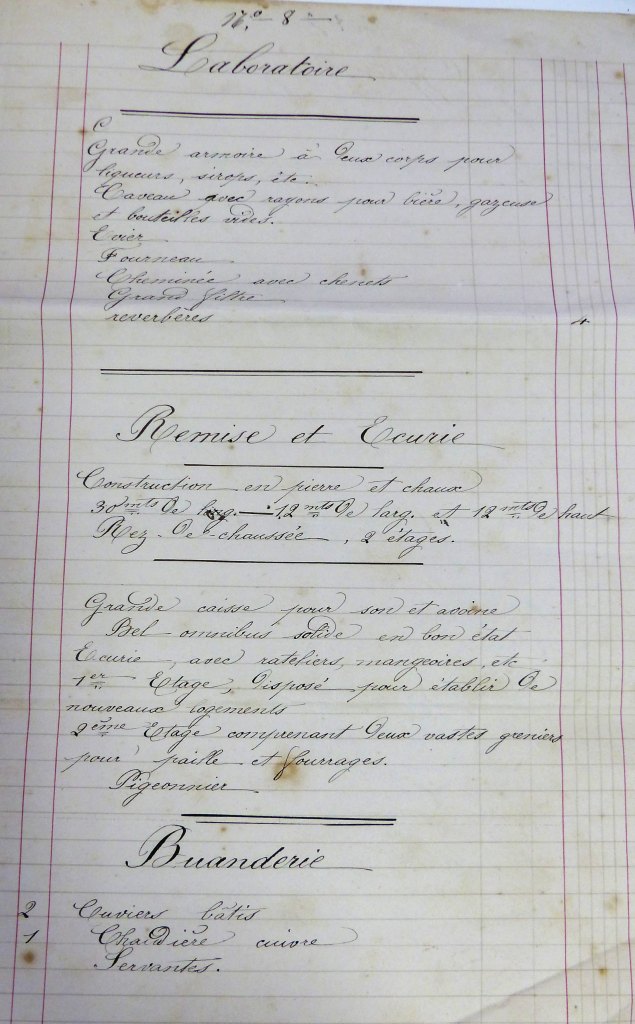 N.o 8
Laboratoire
Grande armoire à deux corps pour
liqueurs, sirops, etc.
Caveau avec rayons pour bière, gazeuse
et bouteilles vides.
Evier
Fourneau
Cheminée avec chenets
Grand filtre
reverbères 4
Remise et Ecurie
Construction en pierre et chaux
30 mts de long. — 12 mts de larg. et 12 mts de haut
Rez-de-chaussée, 2 étages.
Grande caisse pour son et avoine
Bel omnibus solide en bon état
Ecurie, avec rateliers, mangeoires, etc.
1er Etage, disposé pour établir de
nouveaux logements
2ème Etage comprenant deux vastes greniers
pour paille et fourrages.
Pigeonnier
Buanderie
2 Cuviers bâtis
1 Chaudière cuivre
Servantes.